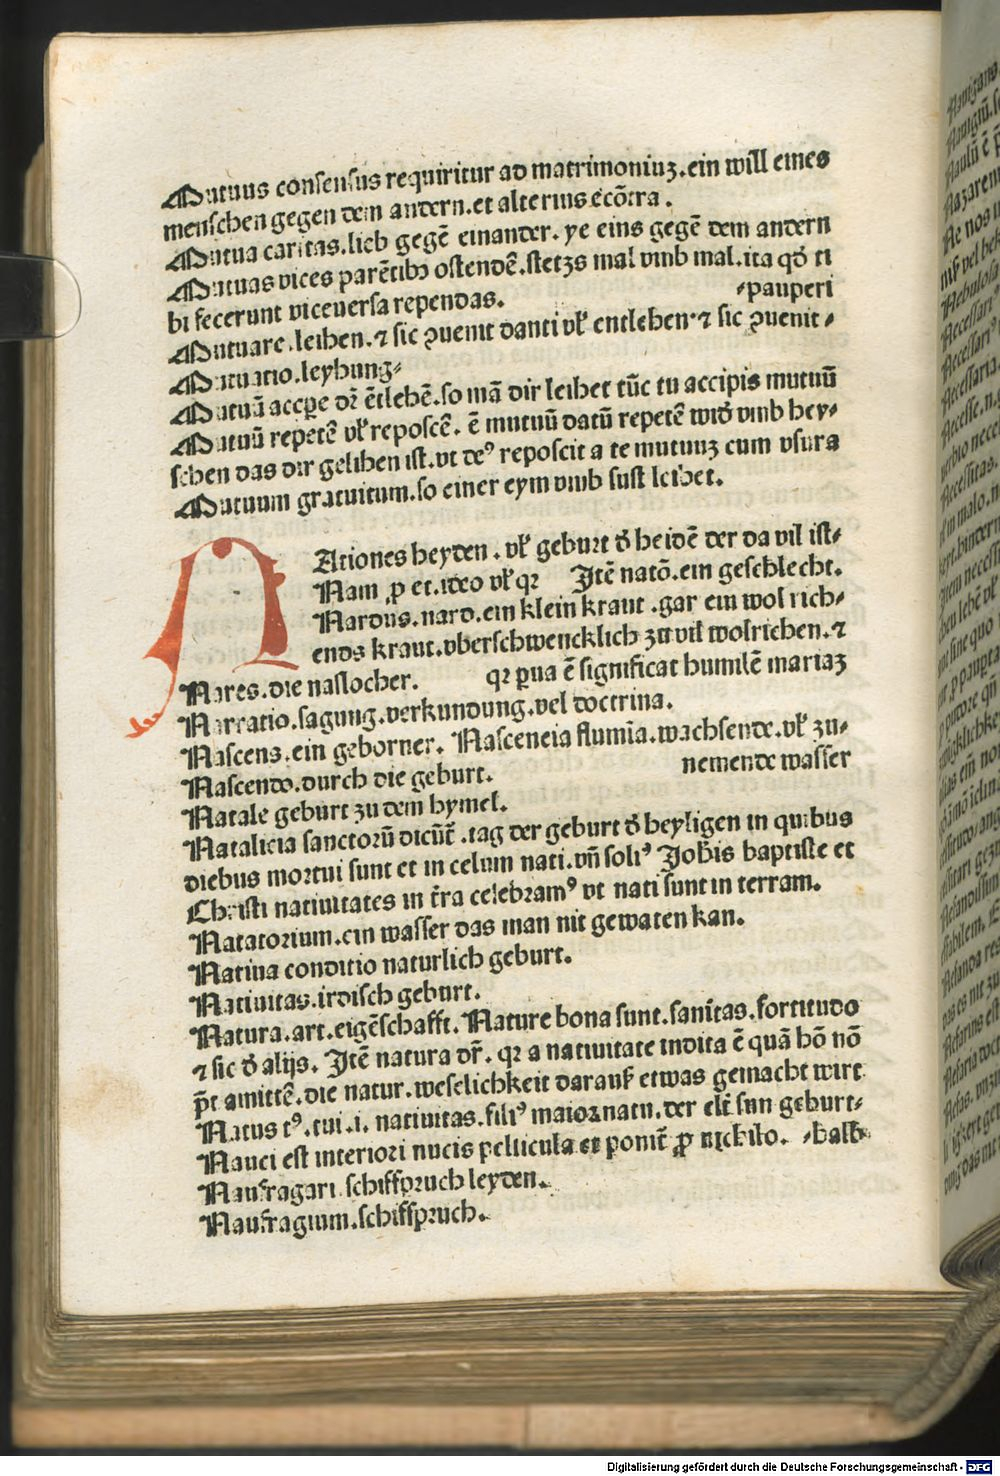 Mutuus consensus requiritur ad matrimoniuꝫ. ein will eines
menschen gegen dem andern. et alterius ecõtra.
Mutua caritas. lieb gegẽ einander. ye eins gegẽ dem andern
Mutuas vices parẽtibꝫ ostendẽ. stetzs mal vmb mal. ita qđ ti
bi fecerunt viceuersa rependas. ⸗pauperi
Mutuare. leihen. ⁊ sic ꝯuenit danti vl̕ entlehen. ⁊ sic ꝯuenit⸗
Mutuatio. leyhung⸗
Mutuũ accipe dꝛ̃ ẽtlehẽ. so mã dir leihet tũc tu accipis mutuũ
Mutuũ repetẽ vl̕ reposcẽ. ẽ mutuũ datũ repetẽ wið vmb hey⸗
schen das dir gelihen ist. vt deꝰ reposcit a te mutuuꝫ cum vsura
Mutuum gratuitum. so einer eym vmb sust leihet.
NAtiones heyden. vl̕ geburt ð heidẽ der da vil ist⸗
Nam ꝓ et. ideo vl̕ qꝛ Itẽ natõ. ein geschlecht.
Nardus. nard. ein klein kraut. gar ein wol rich⸗
ends kraut. vberschwencklich zu vil wolrichen. ⁊
Nares. die naslocher. qꝛ ꝑua ẽ significat humilẽ mariaꝫ
Narratio. sagung. verkundung. vel doctrina.
Nascens. ein geborner. Nascencia flumĩa. wachsende. vl̕ zu⸗
Nascendo. durch die geburt. nemende wasser
Natale geburt zu dem hymel.
Natalicia sanctorũ dicũt̃. tag der geburt ð heyligen in quibus
diebus mortui sunt et in celum nati. vñ soliꝰ Joh̃is baptiste et
Christi natiuitates in t̃ra celebramꝰ vt nati sunt in terram.
Natatorium. ein wasser das man nit gewaten kan.
Natiua conditio naturlich geburt.
Natiuitas. irdisch geburt.
Natura. art. eigẽschafft. Nature bona sunt. sanĩtas. fortitudo
⁊ sic ð alijs. Itẽ natura dꝛ̃. qꝛ a natiuitate indita ẽ quã hõ nõ
p̃t amittẽ. die natur. weselichkeit darauß etwas gemacht wirt
Natus tꝰ. tui. i. natiuitas. filiꝰ maioꝛ natu. der elt̃ sun geburt⸗
Nauci est interiori nucis pellicula et ponit̃ ꝓ nichilo. ⸗halb
Naufragari schiffpruch leyden.
Naufragium. schiffpruch.
Digitalisierung gefördert durch die Deutsche Forschungsgemeinschaft - DFG